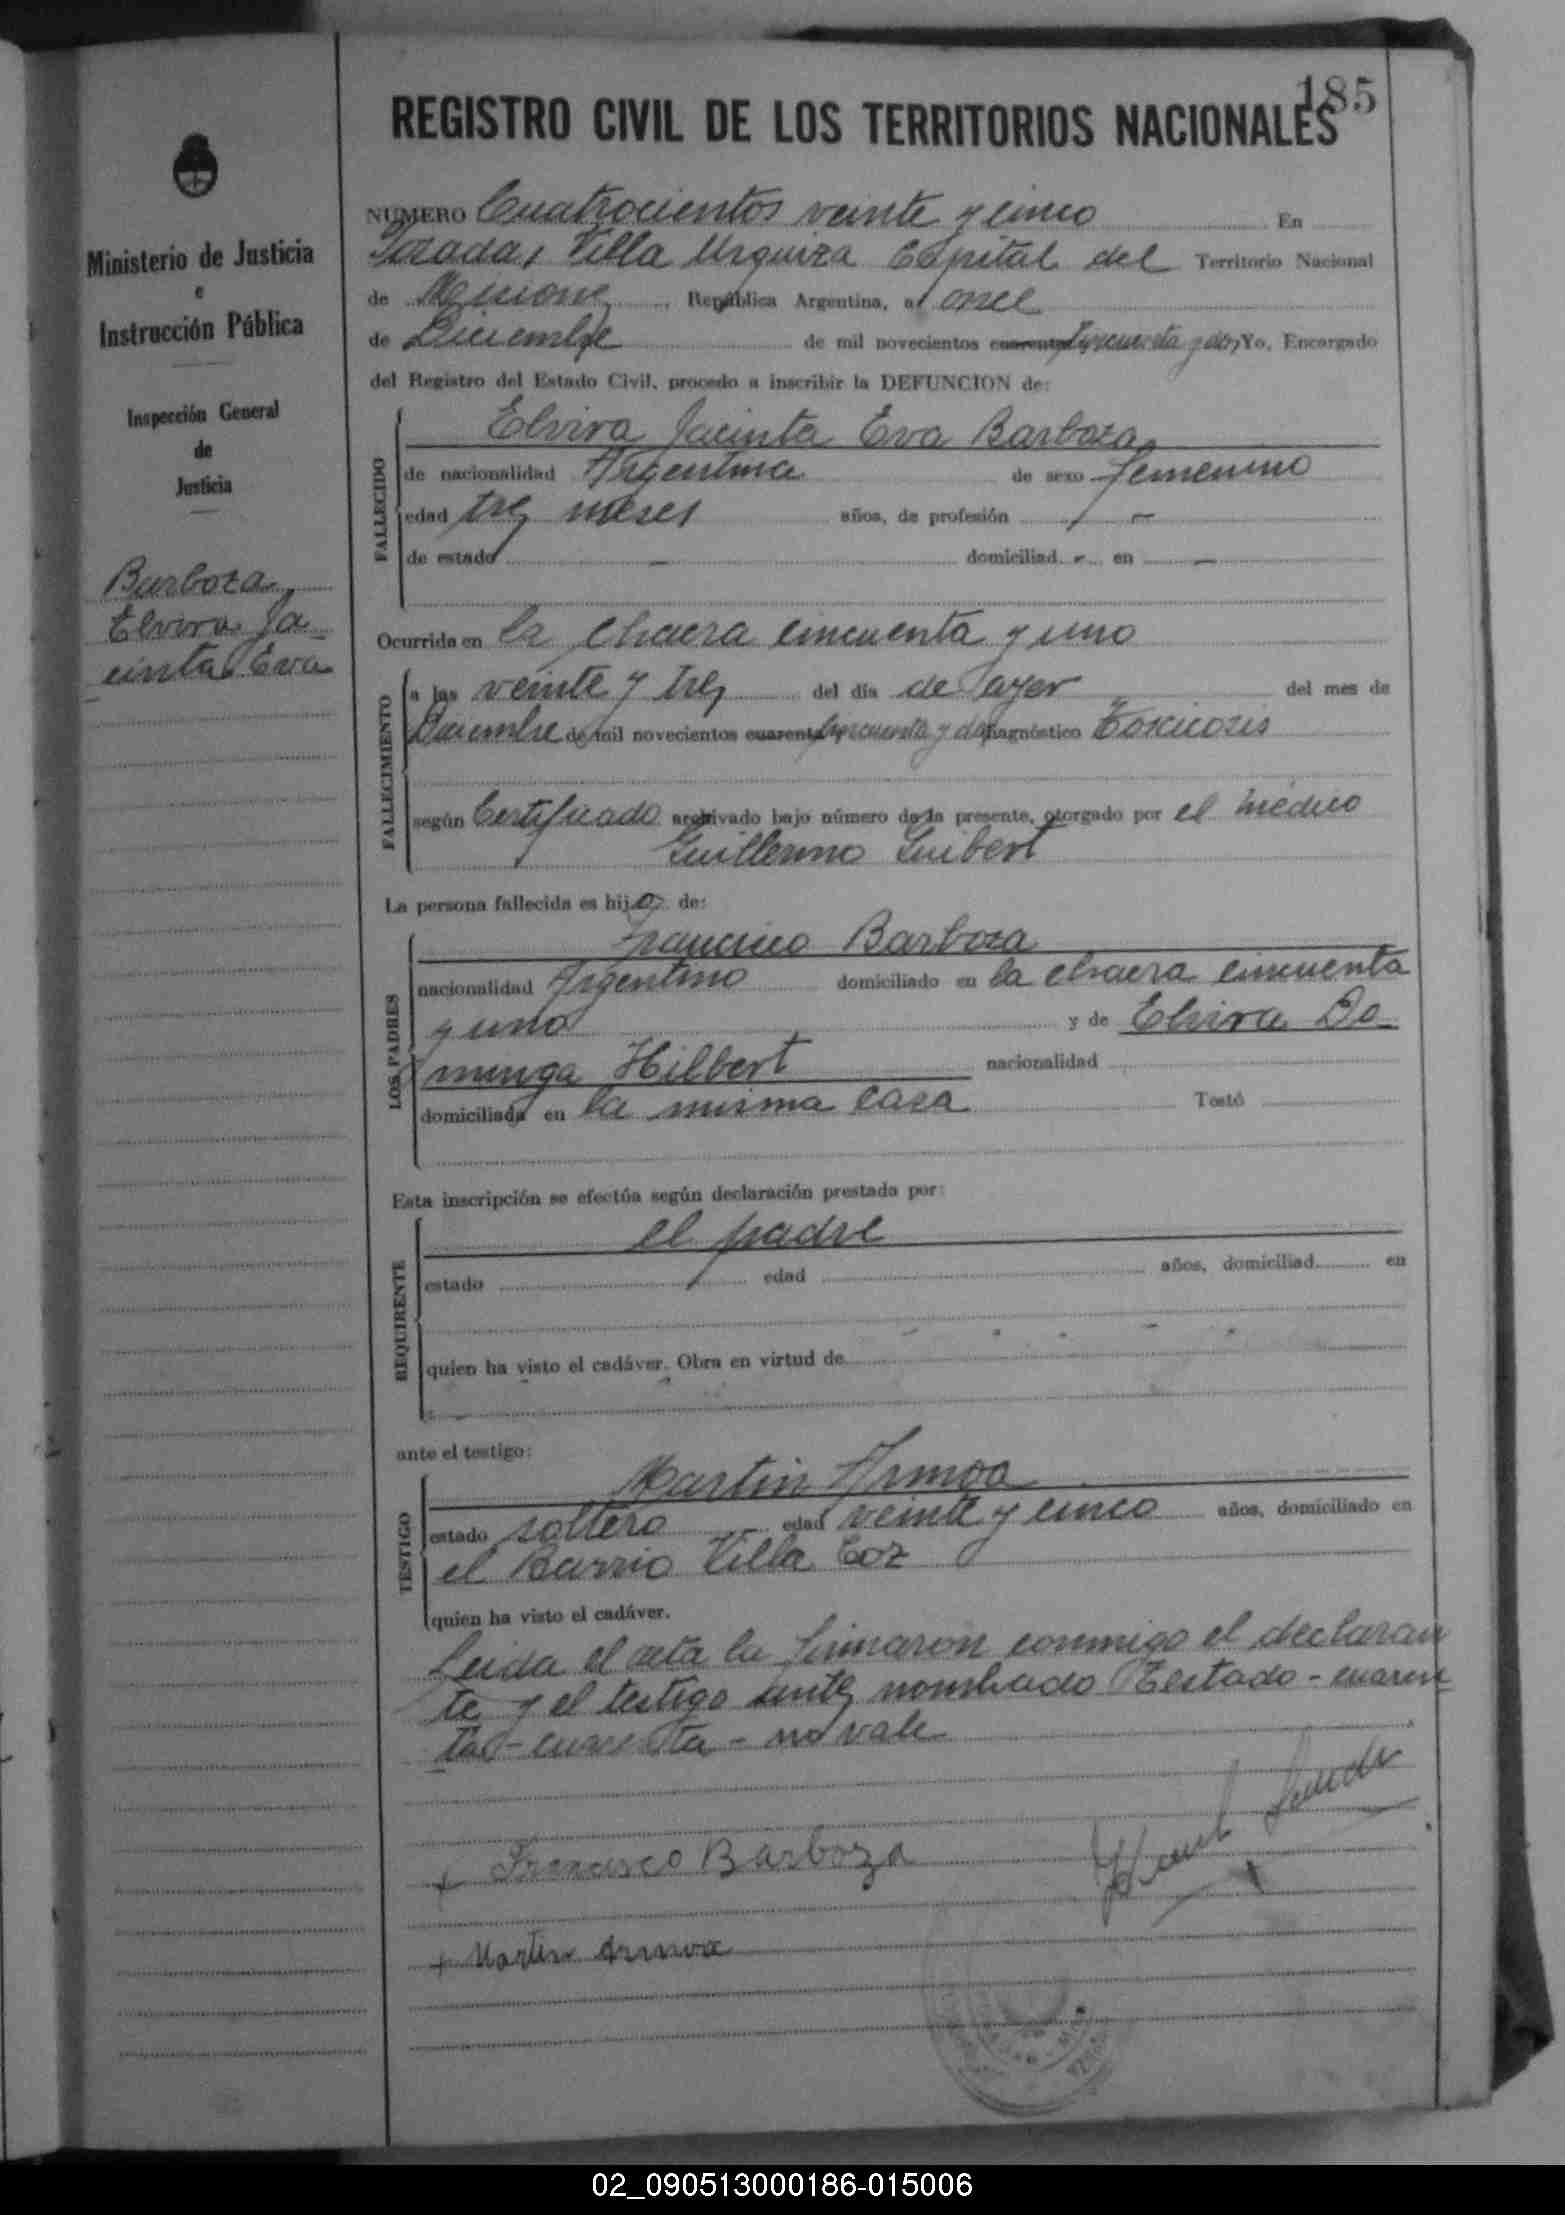 185
REGISTRO CIVIL DE LOS TERRITORIOS NACIONALES
Ministerio de Justicia
e
Instrucción Pública
Inspección General
de
Justicia
Barboza
Elvira Ja-
cinta Eva
NUMERO Cuatrocientos veinte y cinco En
Posadas, Villa Urquiza Capital del Territorio Nacional
de Misiones, República Argentina, a once
de Diciembre de mil novecientos cuarenta cincuenta y dos, Yo, Encargado
del Registro del Estado Civil, procedo a inscribir la DEFUNCION de:
FALLECIDO
Elvira Jacinta Eva Barboza
de nacionalidad Argentina de sexo femenino
edad tres meses años, de profesión -
de estado - domiciliad - en -
Ocurrida en la chacra cincuenta y uno
FALLECIMIENTO
a las veinte y tres del día de ayer del mes de
Diciembre de mil novecientos cuarenta cincuenta y dos diagnóstico Toxicosis
según Certificado archivado bajo número de la presente, otorgado por el médico
Guillermo Guibert
La persona fallecida es hija de:
LOS PADRES
Francisco Barboza
nacionalidad Argentino domiciliado en la chacra cincuenta
y uno y de Elvira Do-
minga Hilbert nacionalidad
domiciliada en la misma casa Testó
Esta inscripción se efectúa según declaración prestada por:
REQUIRENTE
el padre
estado edad años, domiciliad en
quien ha visto el cadáver. Obra en virtud de
ante el testigo:
TESTIGO
Martin Armoa
estado soltero edad veinte y cinco años, domiciliado en
el Barrio Villa Coz
quien ha visto el cadáver.
Leida el acta la firmaron conmigo el declaran
te y el testigo antes nombrado Testado - cuaren
ta - cuarenta - no vale
+ Francisco Barboza
+ Martin Armoa
02_090513000186-015006